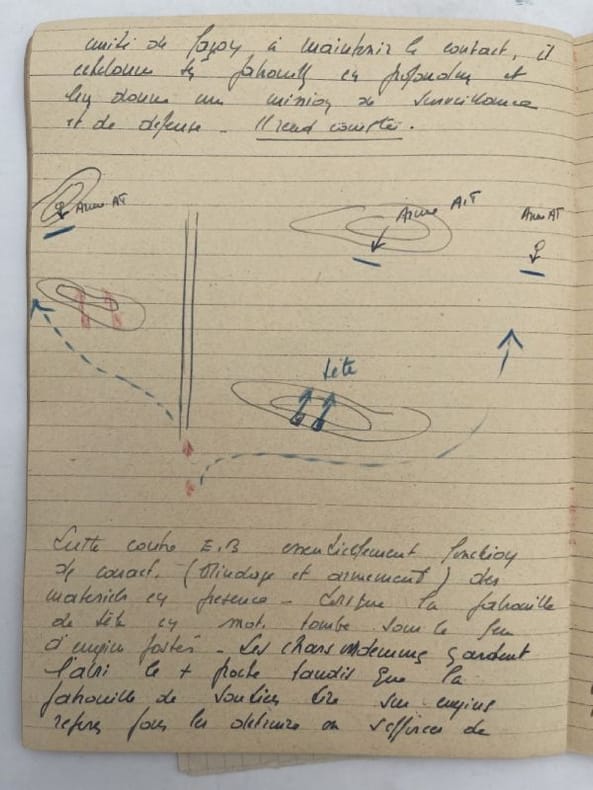 unité de façon à maintenir le contact, il
échelonne ses patrouilles en profondeur et
leur donne une mission de surveillance
et de défense - Il rend compte.
Arme AT
Arme A.T
Arme AT
tête
Lutte contre E.B essentiellement fonction
de caract. (blindage et armement) des
matériels en présence - Lorsque la patrouille
de tête en mot. tombe sous le feu
d'engin postés - Les chars indemnes gardent
l'abri le + proche tandis que la
patrouille de soutien tire sur engins
repérés pour les détruire ou s'efforcer de